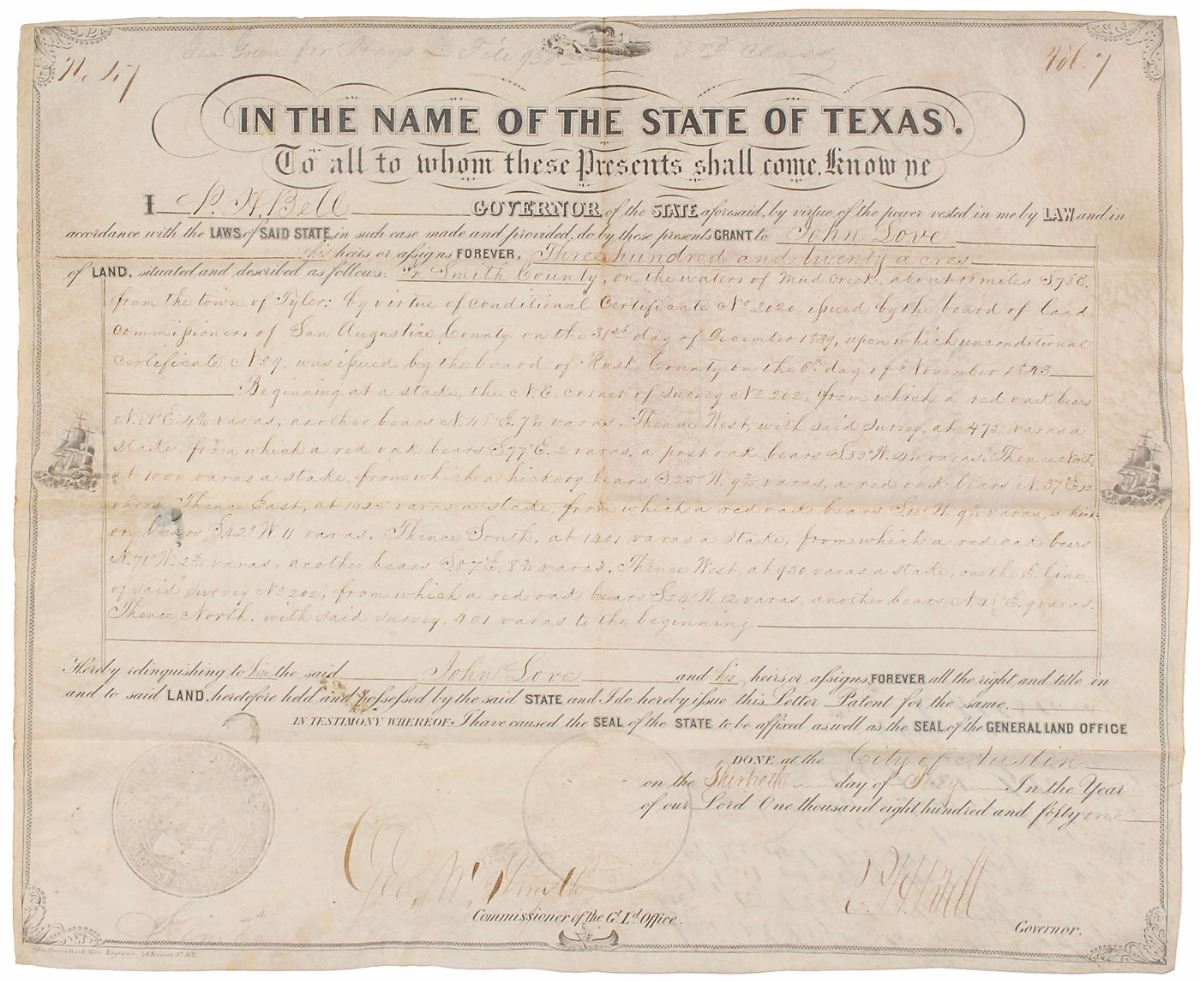 No 47 Vol. 7
IN THE NAME OF THE STATE OF TEXAS.
To all to whom these Presents shall come, Know ye
I P. H. Bell GOVERNOR of the STATE aforesaid, by virtue of the power vested in me by LAW and in
accordance with the LAWS of SAID STATE, in such case made and provided, do by these presents GRANT to John Love
his heirs or assigns FOREVER, Three hundred and twenty acres
of LAND, situated and described as follows: In Smith County, on the waters of Mud Creek, about 13 miles S. 73° E.
from the town of Tyler; by virtue of conditional Certificate No 2020, issued by the board of land
commissioners of San Augustine County on the 31st day of December 1839, upon which unconditional
certificate No 29, was issued by the board of Rusk County on the 6th day of November 1843
Beginning at a stake, the N.E. corner of Survey No 202, from which a red oak bears
N. 81° E. varas, another bears N. 45° E. varas. Thence West, with said survey, at 475 varas a
stake, from which a red oak bears S. 77° E. 2 varas, a post oak bears S. 33° W. varas. Thence North,
at 1000 varas a stake, from which a hickory bears S. 25° W. varas, a red oak bears N. 37° E. 12
varas. Thence East, at 1425 varas a stake, from which a red oak bears W. varas, a hick-
ory bears S. 42° W. 11 varas. Thence South, at 1401 varas a stake, from which a red oak bears
N. 71° W. varas, another bears S. 87° E. varas. Thence West, at 950 varas a stake, on the E. line
of said survey No 202, from which a red oak bears S. 24° W. 12 varas, another bears N. 45° E. 9 varas.
Thence North, with said survey, 401 varas to the beginning
Hereby relinquishing to him the said John Love and his, heirs or assigns, FOREVER all the right and title in
and to said LAND, heretofore held and possessed by the said STATE and I do hereby issue this Letter Patent for the same.
IN TESTIMONY WHEREOF: I have caused the SEAL of the STATE to be affixed as well as the SEAL of the GENERAL LAND OFFICE
DONE at the City of Austin
on the Thirtieth day of In the Year
of our Lord One thousand eight hundred and fifty one
Geo. W. Smyth P. H. Bell
Commissioner of the Gl. Ld. Office.
Governor.